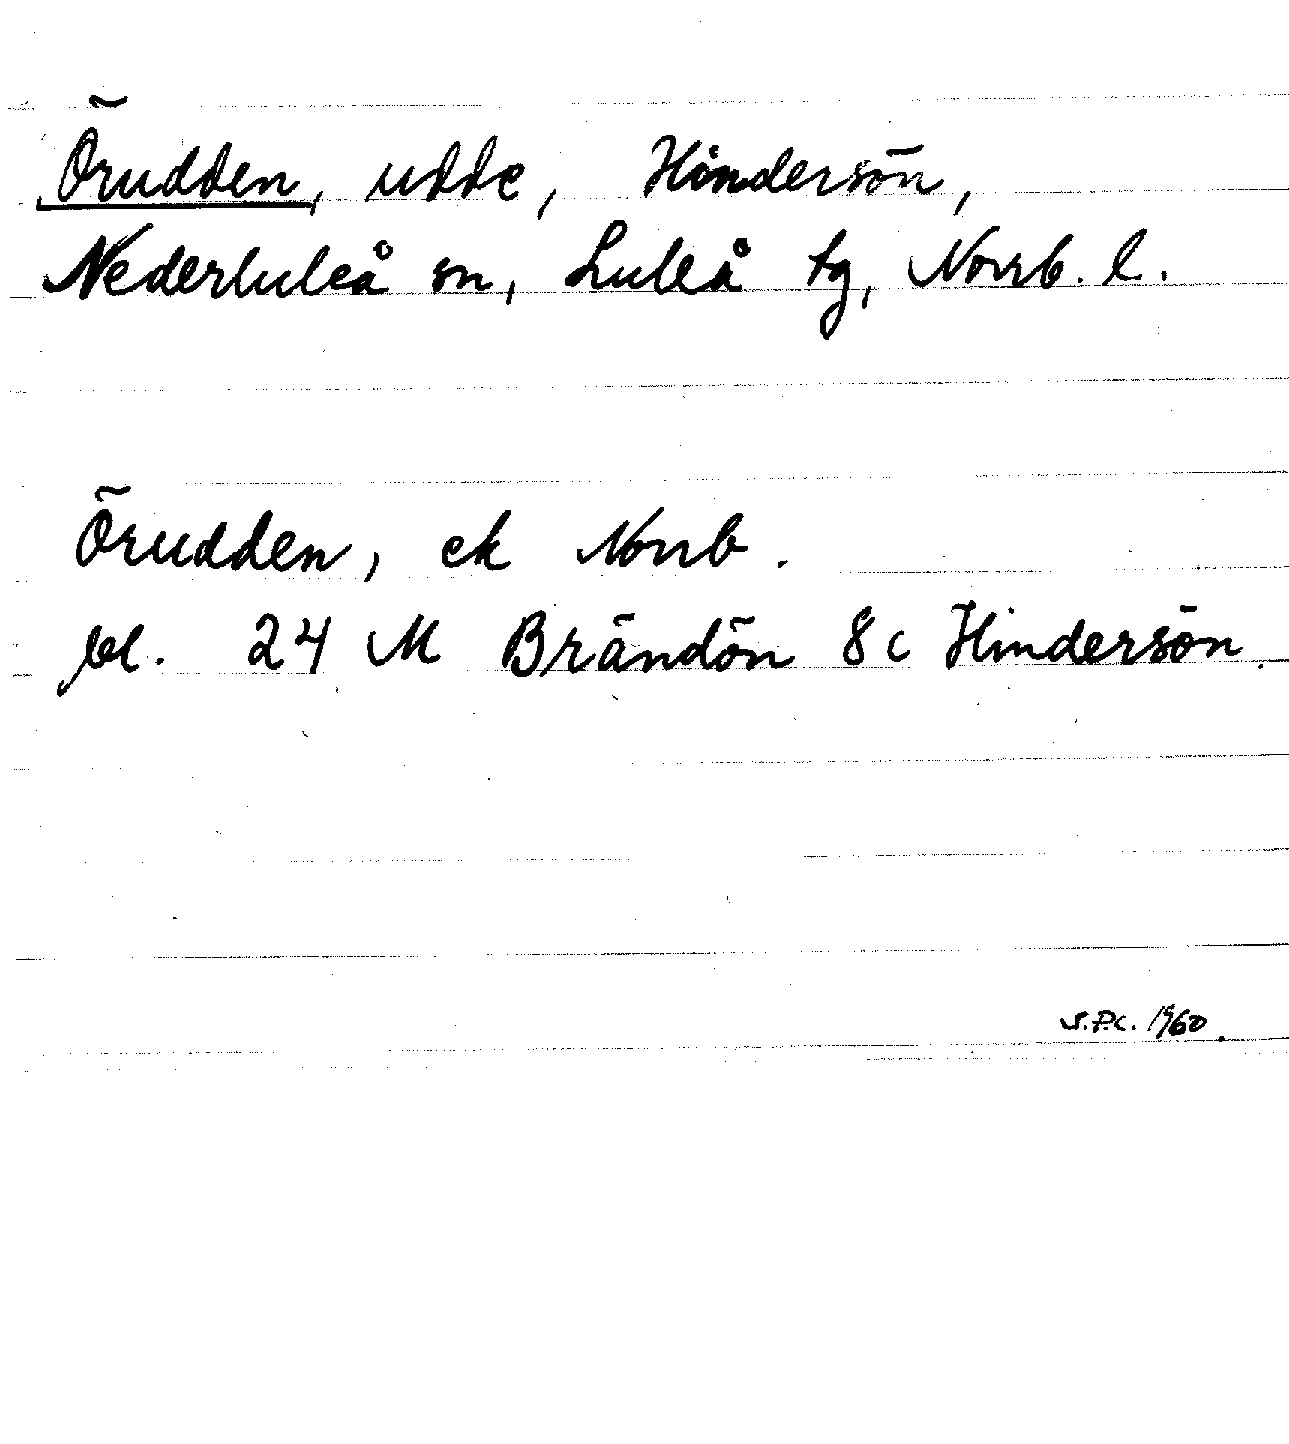 Örudden, udde, Hindersön,
Nederluleå sn, Luleå tg, Norrb. l.
Örudden, ek Norrb.
bl. 24 M Brändön 8c Hindersön.
1960